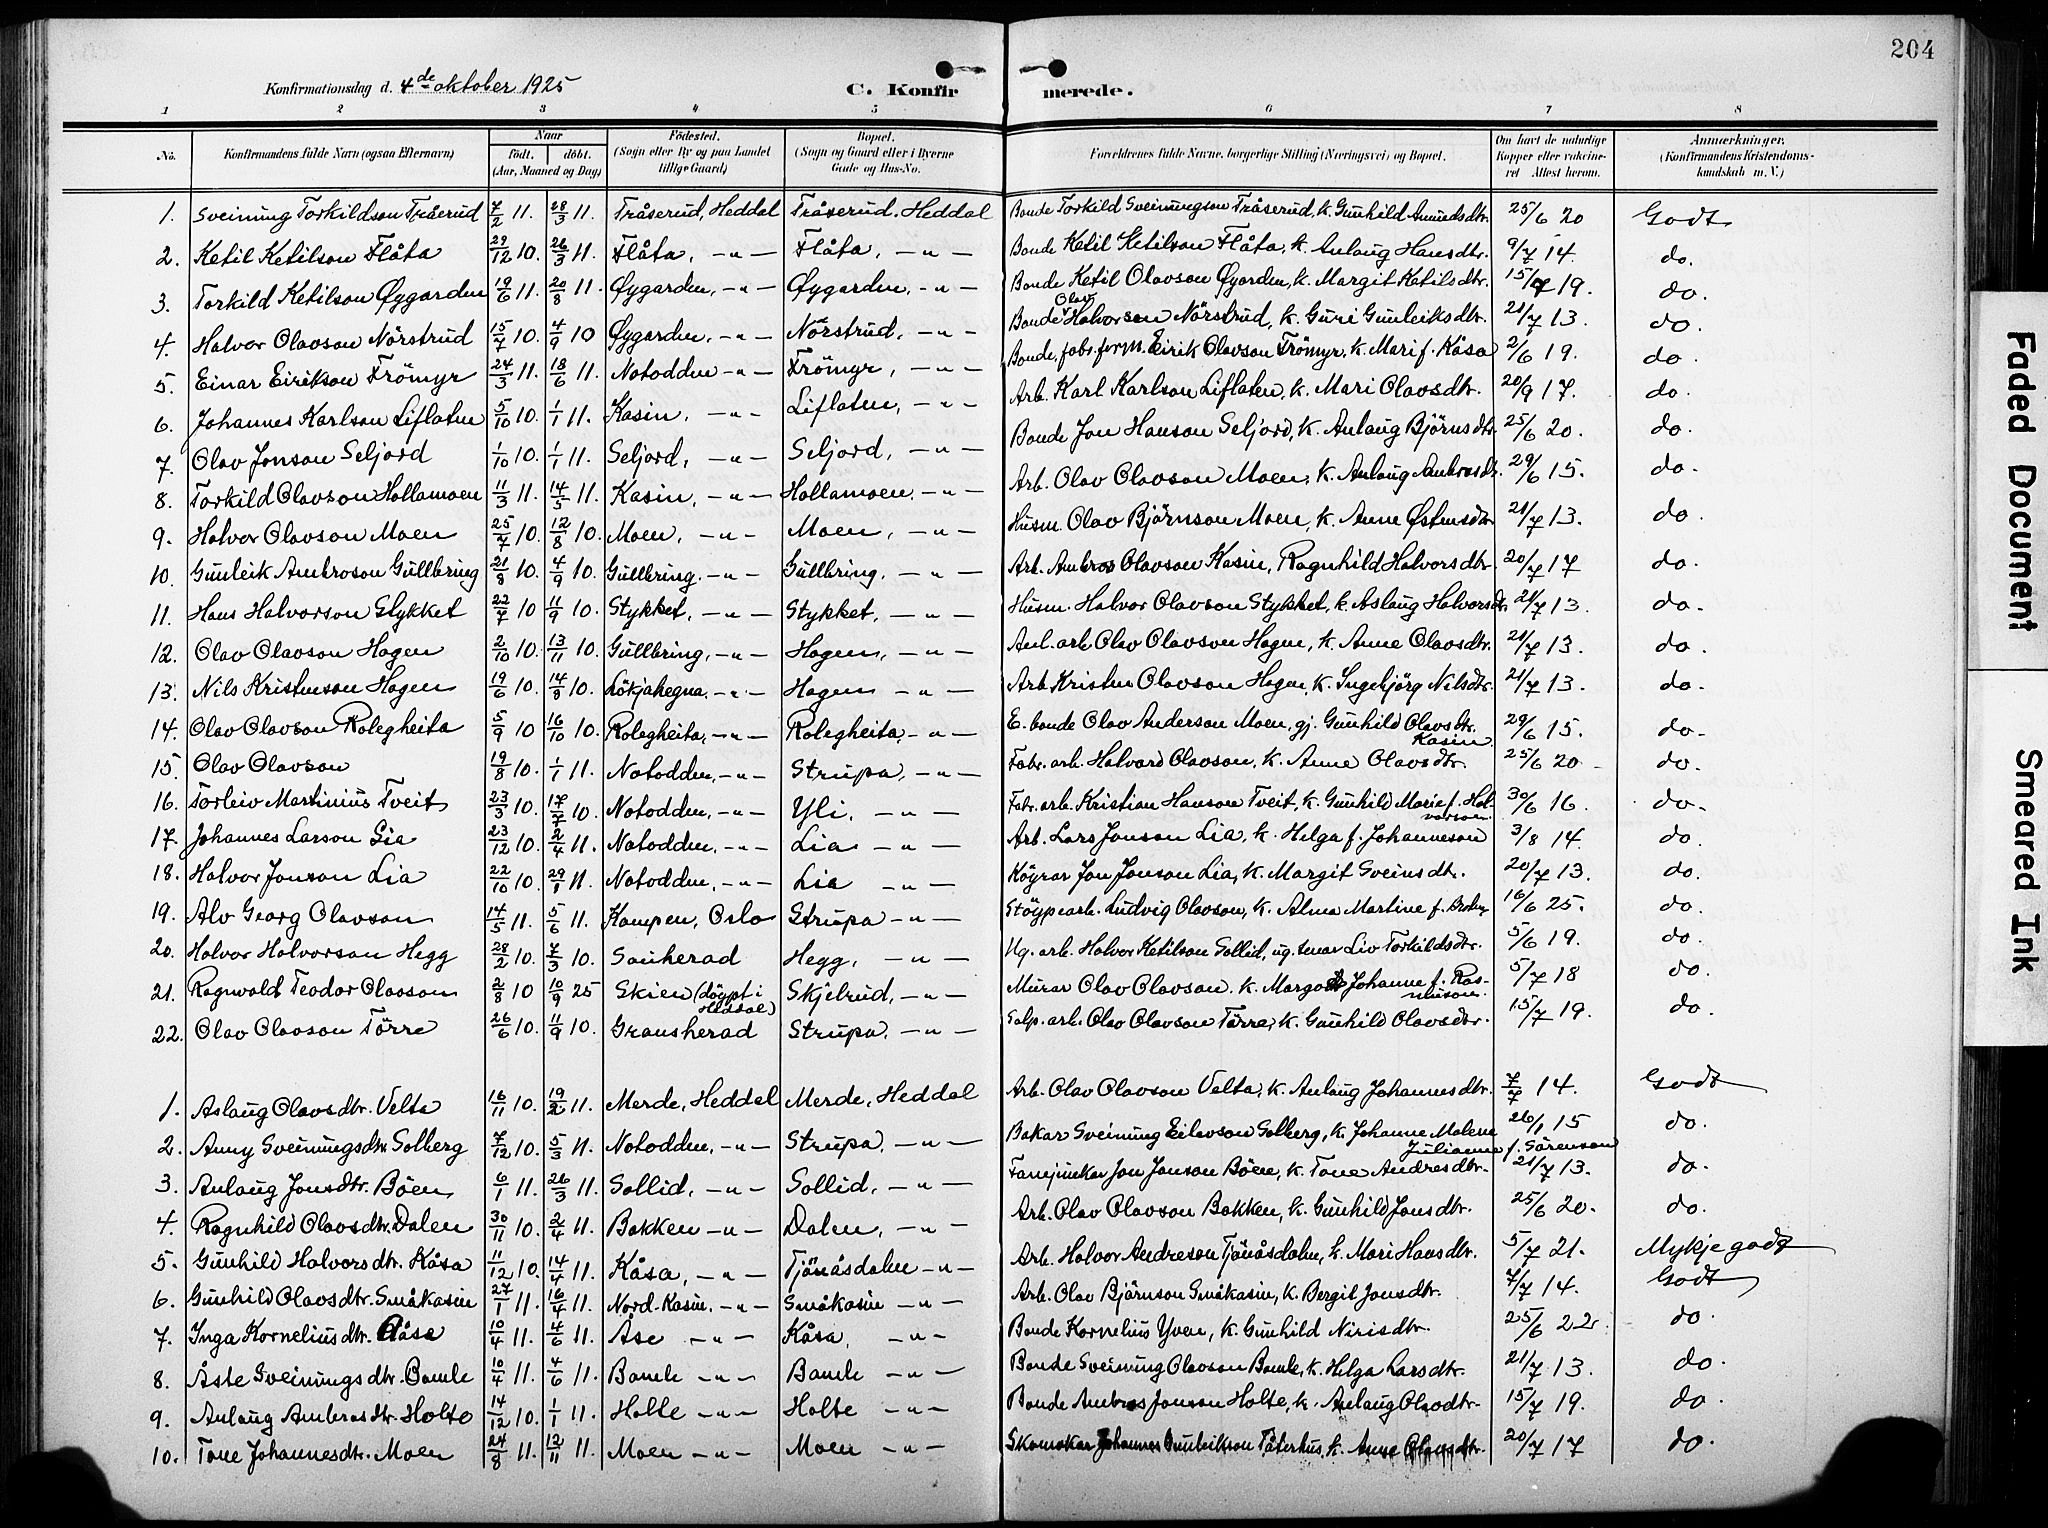 204
Konfirmationsdag d. 4de oktober 1925 C. Konfirmerede.
1 2 3 4 5 6 7 8
No. Konfirmandens fulde Navn (ogsaa Efternavn) Naar født. døbt. (Aar, Maaned og Dag) Födested. (Sogn eller By og paa Landet tillige Gaard) Bopæl. (Sogn og Gaard eller i Byerne Gade og Hus-No. Forældrenes fulde Navne, borgerlige Stilling (Næringsvei) og Bopæl. Om havt de naturlige Kopper eller vakcineret. Attest herom. Anmærkninger. (Konfirmandens Kristendomskundskab m. V.)
1. Sveinung Torkildson Tråserud 7/2 11. 28/3 11. Tråserud, Heddal Tråserud, Heddal Bonde Torkild Sveinungson Tråserud, k. Gunhild Amundsdtr. 25/6 20 Godt
2. Ketil Ketilson Flåta 29/12 10. 26/3 11. Flåta, -"- Flåta, -"- Bonde Ketil Ketilson Flåta, k. Anlaug Hansdtr. 9/7 14. do.
3. Torkild Ketilson Øygarden 19/6 11. 20/8 11. Øygarden, -"- Øygarden, -"- Bonde Ketil Olavson Øygarden, k. Margit Ketilsdtr. 15/7 19. do.
4. Halvor Olavson Nörstrud 15/7 10. 4/9 10 Øygarden, -"- Nörstrud, -"- Bonde Olav Halvorsen Nörstrud, k. Guri Gunleiksdtr. 21/7 13. do.
5. Einar Eirikson Frömyr 24/3 11. 18/6 11. Notodden -"- Frömyr, -"- Bonde, fabr.form. Eirik Olavson Frömyr, k. Mari f. Kåsa 2/6 19. do.
6. Johannes Karlson Liflaten 5/10 10. 1/1 11. Kasin, -"- Liflaten, -"- Arb. Karl Karlson Liflaten, k. Mari Olavsdtr. 20/9 17. do.
7. Olav Jonson Seljord 1/10 10. 1/1 11. Seljord, -"- Seljord, -"- Bonde Jon Hanson Seljord, k. Anlaug Björnsdtr. 25/6 20. do.
8. Torkild Olavson Hollamoen 11/3 11. 14/5 11. Kasin, -"- Hollamoen, -"- Arb. Olav Olavson Moen, k. Anlaug Ambrosdtr. 29/6 15. do.
9. Halvor Olavson Moen 25/7 10. 12/8 10. Moen, -"- Moen, -"- Husm. Olav Björnson Moen, k. Anne Østensdtr 21/7 13. do.
10. Gunleik Ambroson Gullbring 21/8 10. 4/9 10. Gullbring, -"- Gullbring, -"- Arb. Ambros Olavson Kasin, Ragnhild Halvorsdtr. 20/7 17 do.
11. Hans Halvorson Stykket 22/7 10 11/9 10. Stykket, -"- Stykket, -"- Husm. Halvor Olavson Stykket, k. Aslaug Halvorsdtr. 21/7 13. do.
12. Olav Olavson Hagen 2/10 10. 13/11 10. Gullbring, -"- Hagen, -"- Anl. arb. Olav Olavson Hagen, k. Anne Olavsdtr. 21/7 13. do.
13. Nils Kristenson Hagen 19/6 10. 14/9 10. Lökjahegna, -"- Hagen -"- Arb. Kristen Olavson Hagen, k. Ingebjörg Nilsdtr. 21/7 13. do.
14. Olav Olavson Rolegheita 5/9 10 16/10 10. Rolegheita, -"- Rolegheita, -"- E. bonde Olav Anderson Moen, gj. Gunhild Olavsdtr. Kasin 29/6 15. do.
15. Olav Olavson 19/8 10. 1/1 11. Notodden, -"- Strupa, -"- Fabr. arb. Halvard Olavson, k. Anne Olavsdtr. 25/6 20 do.
16. Torleiv Martinius Tveit 23/3 10. 17/7 10. Notodden, -"- Yli, -"- Fabr. arb. Kristian Hanson Tveit, k. Gunhild Marie f. Halvorsen 30/6 16. do.
17. Johannes Larson Lia 23/12 10. 2/4 11. Notodden, -"- Lia -"- Arb. Lars Jonson Lia, k. Helga f. Johanneson 3/8 14. do.
18. Halvor Jonson Lia 22/10 10. 29/1 11. Notodden, -"- Lia -"- Köyrar Jon Jonson Lia, k. Margit Sveinsdtr. 20/7 13. do.
19. Alv Georg Olavson 14/5 11. 5/6 11. Kampen, Oslo Strupa -"- Stöyparb. Ludvig Olavson, k. Alma Martine f. 16/6 25. do.
20. Halvor Halvorson Hegg 28/2 10. 7/3 10. Sauherad Hegg, -"- Ug. arb. Halvor Ketilson Sollid, ug. tenar Liv Torkildsdtr. 5/6 19. do.
21. Ragnvald Teodor Olavson 2/8 10 10/9 25 Skien (döypt i Heddal) Skjelrud, -"- Murar Olav Olavson, k. Margot Johanne f. Rasmuson. 5/7 18 do.
22. Olav Olavson Törre 26/6 10. 11/9 10. Gransherad Strupa, -"- Salp. arb. Olav Olavson Törre, k. Gunhild Olavsdtr. 15/7 19. do.
1. Aslaug Olavsdtr. Velta 16/11 10. 19/2 11. Merde, Heddal Merde, Heddal Arb. Olav Olavson Velta, k. Anlaug Johannesdtr. 7/7 14. Godt
2. Anny Sveinungsdtr. Solberg 7/12 10. 5/3 11. Notodden, -"- Strupa, -"- Bakar Sveinung Eilevson Solberg, k. Johanne Malene Julianna f. Sörenson 26/1 15 do.
3. Anlaug Jonsdtr. Böen 6/1 11. 26/3 11. Sollid, -"- Sollid, -"- Jon Jonson Böen, k. Tone Andresdtr. 21/7 13. do.
4. Ragnhild Olavsdtr. Dalen 30/11 10. 2/4 11. Bakken -"- Dalen, -"- Arb. Olav Olavson Bakken, k. Gunhild Jonsdtr. 25/6 20. do.
5. Gunhild Halvorsdtr. Kåsa 11/12 10. 14/4 11. Kåsa, -"- Tjönåsdalen -"- Arb. Halvor Andreson Tjönåsdalen, k. Mari Hansdtr. 5/7 21. Mykje godt
6. Gunhild Olavsdtr. Småkasin 27/1 11. 16/4 11. Nord-Kasin, -"- Småkasin -"- Arb. Olav Björnson Småkasin, k. Bergit Jonsdtr. 7/7 14. Godt
7. Inga Korneliusdtr. Kåsa 10/4 11. 4/6 11. Åse -"- Kåsa, -"- Bonde Kornelius Yven, k. Gunhild Nirisdtr. 25/6 22. do.
8. Åste Sveinungsdtr. Bamle 10/4 11. 4/6 11. Bamle -"- Bamle -"- Bonde Sveinung Olavson Bamle, k. Helga Larsdtr. 21/7 13. do.
9. Anlaug Ambrosdtr. Holte 14/12 10. 1/1 11. Holte -"- Holte -"- Bonde Ambros Jonson Holte, k. Anlaug Olavdtr. 15/7 19. do.
10. Tone Johannesdtr. Moen 24/8 11. 12/11 11. Moen -"- Moen -"- Skomakar Johannes Gunleikson Täterhus, k. Anne Olavsdtr. 20/7 17 do.
Faded Document
Smeared Ink